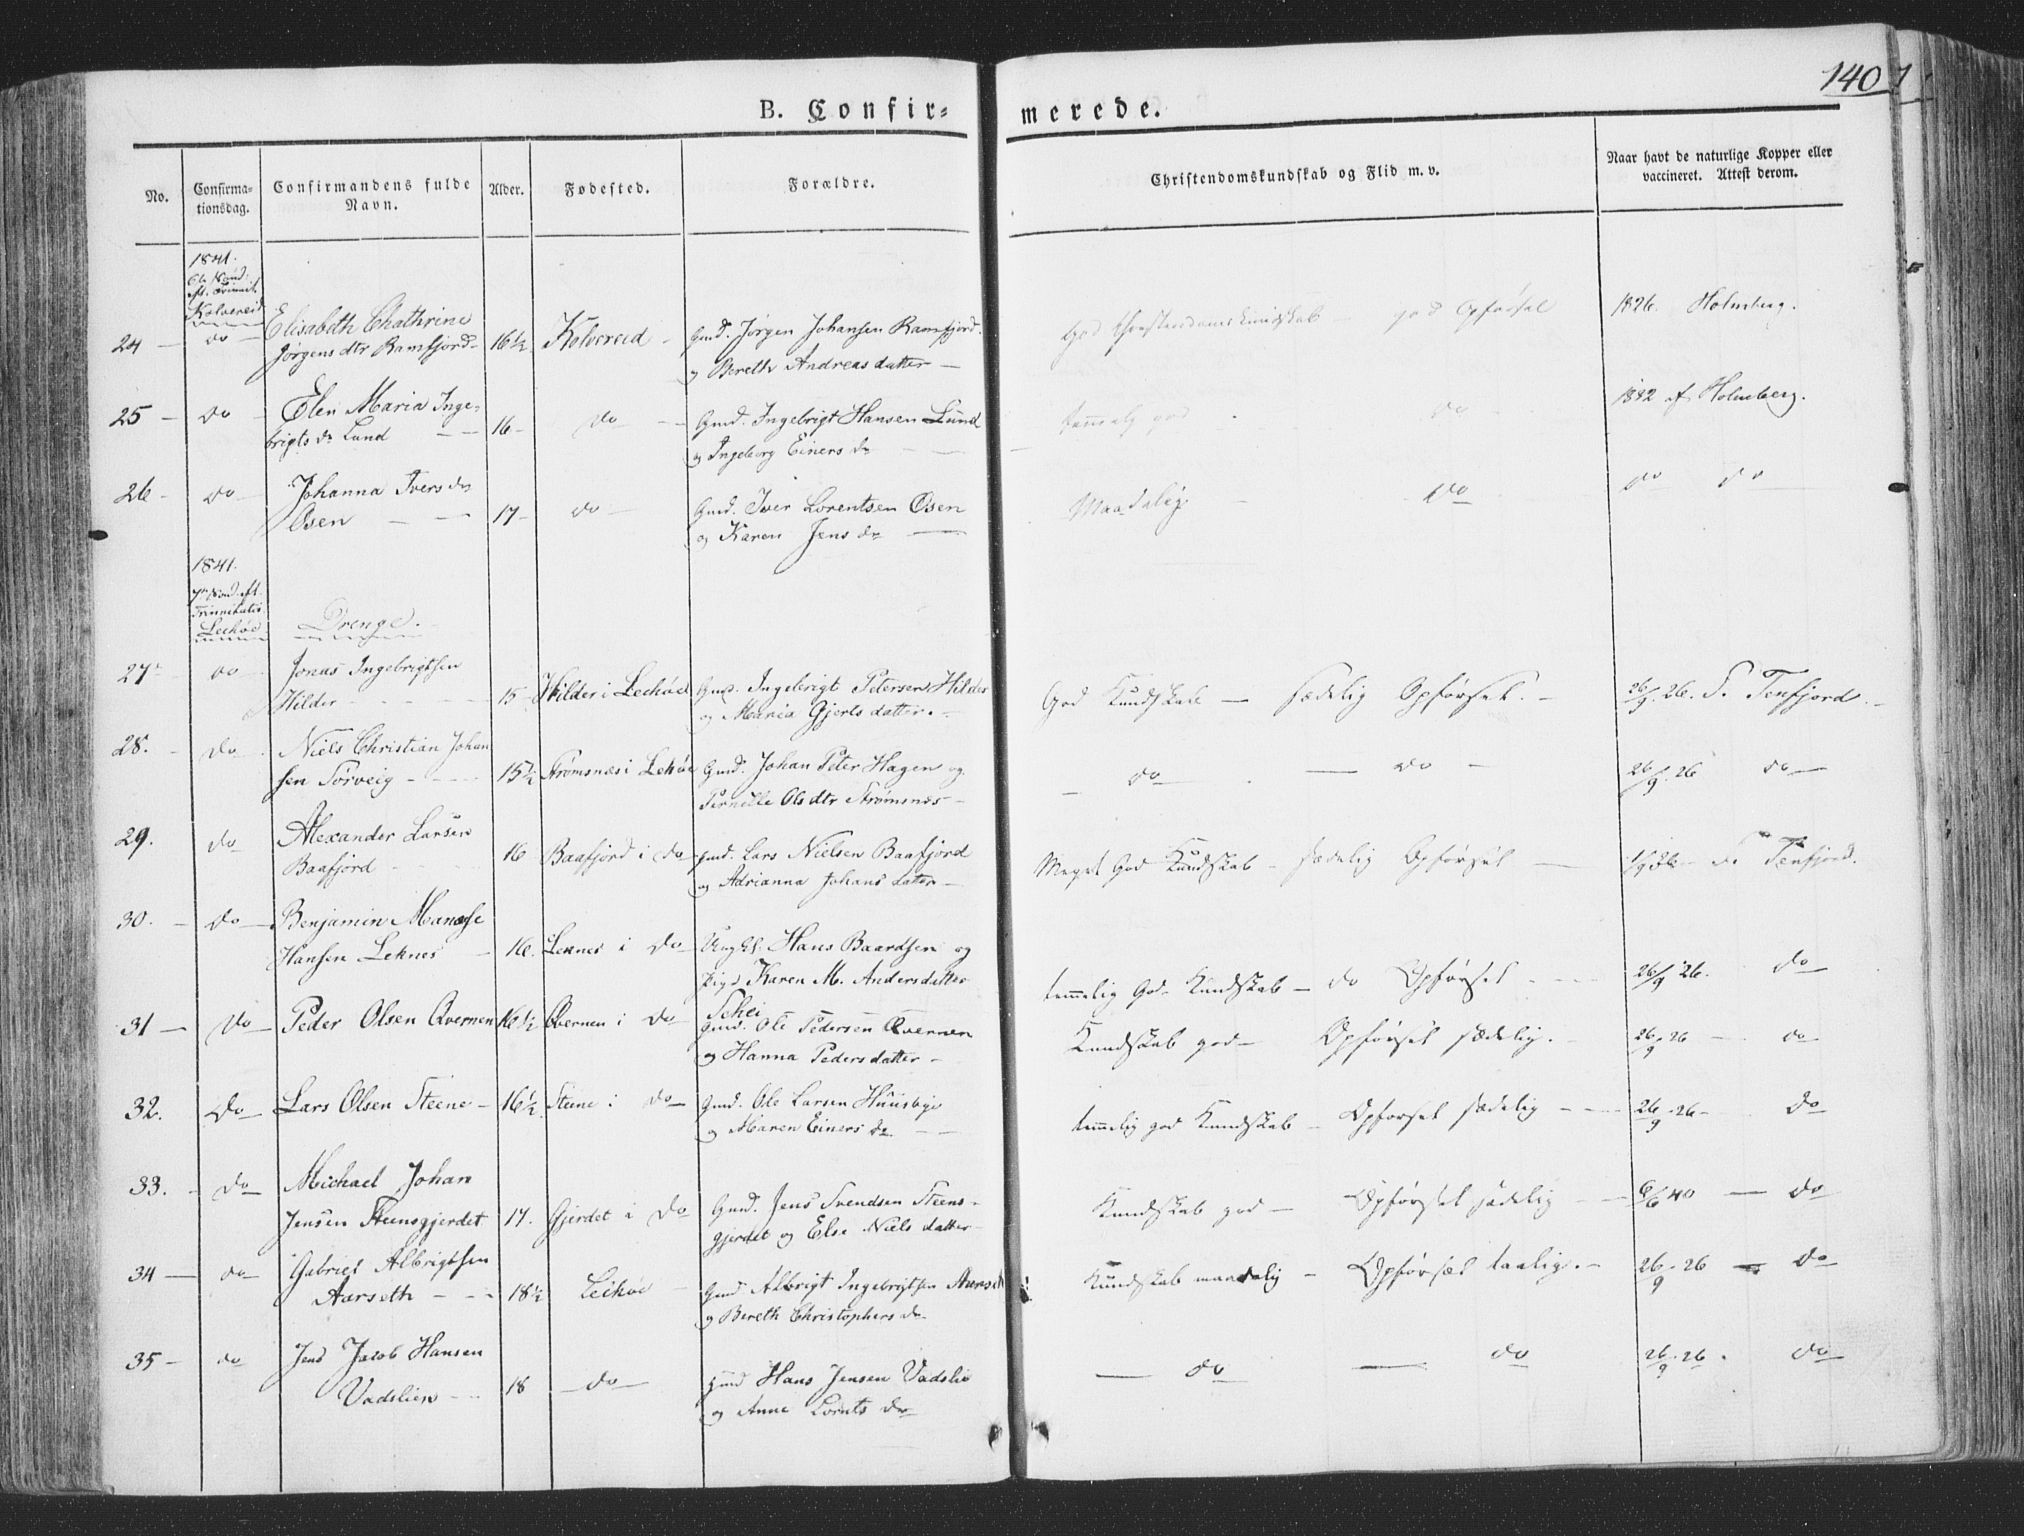 140
B. Confir= merede.
No. Confirma- tionsdag. Confirmandens fulde Navn. Alder. Fødested. Forældre. Christendomskundskab og Flid m. v. Naar havt de naturlige Kopper eller vaccineret. Attest derom.
1841.
Kolvereid
24 — do — Elisabeth Chathrine Jørgensdtr Ramfjord — 16½ Kolvereid — Gmd. Jørgen Johansen Ramfjord. og Bereth Andreasdatter — God Christendomskundskab — god Opførsel 1826. Holmberg.
25 — do — Elen Maria Inge- brigts dr Lund — 16 — do — Gmd. Ingebrigt Hansen Lund og Ingeborg Einers dr — temelig god do 1832 af Holmberg.
26 — do — Johanna Ivers dr Osen — 17 — do — Gmd. Iver Lorentsen Osen og Karen Jens dr — Maadelig — do do do
1841.
7de Sønd. eft.
Trinnitatis
Lechøe
Drenge.
27 — do — Jonas Ingebrigtsen Hilder — 15 — Hilder i Lechöe Gmd. Ingebrigt Petersen Hilder og Maria Gjertsdatter. — God Kundskab — sædelig Opførsel. — 26/9. 26. P. Tenfjord. —
28. — do — Niels Christian Johan sen Törveig — 15½ Strömsnæs i Lekøe Gmd. Johan Peter Hagen og Pernille Olsdtr Strömsnæs — do — do — 26/9. 26 do —
29. do — Alexander Larsen Baafjord — 16 Baafjord i do — gmd. Lars Nielsen Baafjord og Adrianna Johans datter — Meget God Kundskab — sædelig Opførsel — 26 — P. Tenfjord.
30. — do — Benjamin Manasse Hansen Leknes — 16. Leknes i do — Ungkl. Hans Baardsen og Pige Karen M. Andersdatter Sehei temmelig God Kundskab — do Opførsel — 26/9 26. do
31 — do — Peder Olsen Qvernen 16½ Qvernen i do — gmd. Ole Pedersen Qvernen og Hanna Pedersdatter — Kundskab god — Opførsel sædelig. — 26/9 26 — do
32. do — Lars Olsen Steene — 16½ Steene i do — gmd. Ole Larsen Huusbye og Maren Einers dr — temmelig god Kundskab — Opførsel sædelig — 26/9 . 26 — do
33. — do — Michael Johan Jensen Steensgjerdet 17. Gjerdet i do Gmd. Jens Svendsen Steens- gjerdet og Else Nielsdatter — Kundskab god — Opførsel sædelig — 6/6 40 — do
34 — do — Gabriel Albrigtsen Aarseth — 18½ Leikøe — Gmd Albrigt Ingebrigtsen Aarseth og Bereth Christophers dr Kundskab maadelig — Opførsel taalig. — 26/9 . 26 — do
35 — do Jens Jacob Hansen Vadslien — 18 — do — gmd Hans Jensen Vadslie og Anne Lornts dr — do — do 26/9 . 26 . do